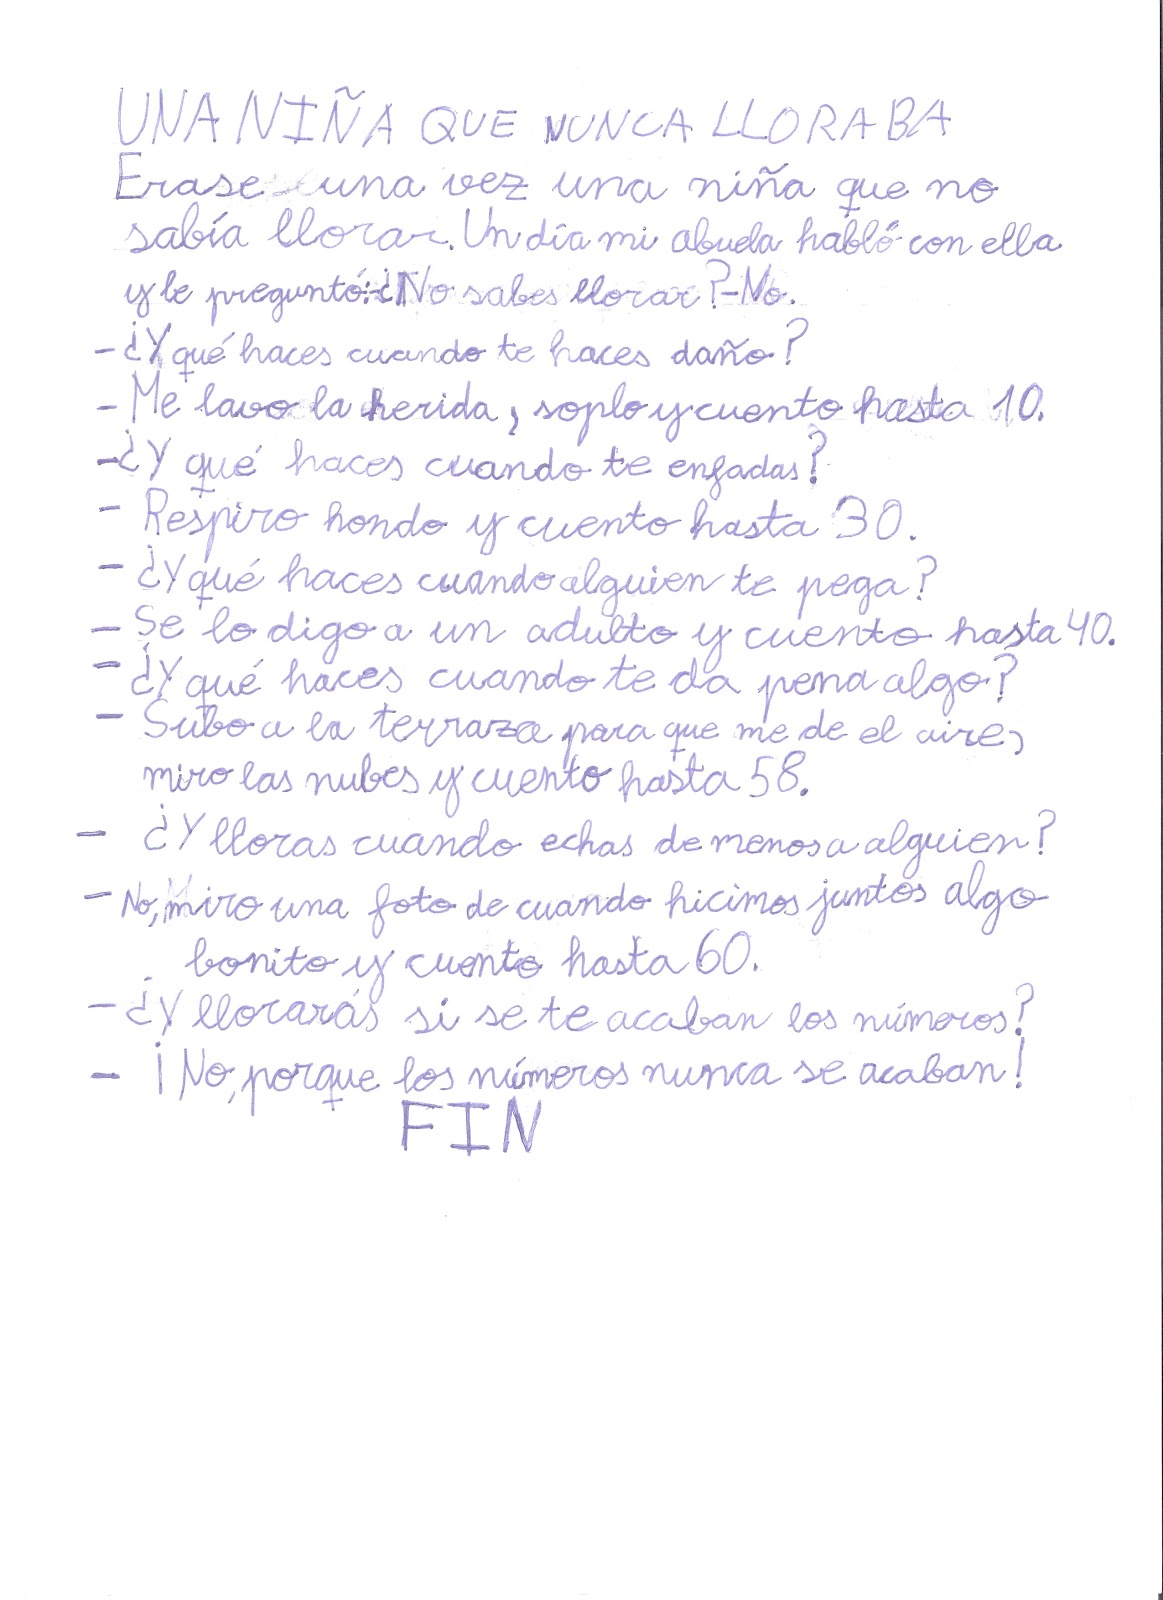 UNA NIÑA QUE NUNCA LLORABA
Erase una vez una niña que no
sabía llorar. Un día mi abuela habló con ella
y le preguntó:-¿No sabes llorar?-No.
-¿Y qué haces cuando te haces daño?
- Me lavo la herida, soplo y cuento hasta 10.
-¿Y qué haces cuando te enfadas?
- Respiro hondo y cuento hasta 30.
- ¿Y qué haces cuando alguien te pega?
- Se lo digo a un adulto y cuento hasta 40.
- ¿Y qué haces cuando te da pena algo?
- Subo a la terraza para que me de el aire,
miro las nubes y cuento hasta 58.
- ¿Y lloras cuando echas de menos a alguien?
- No, Miro una foto de cuando hicimos juntos algo
bonito y cuento hasta 60.
- ¿Y llorarás si se te acaban los números?
- ¡No, porque los números nunca se acaban!
FIN